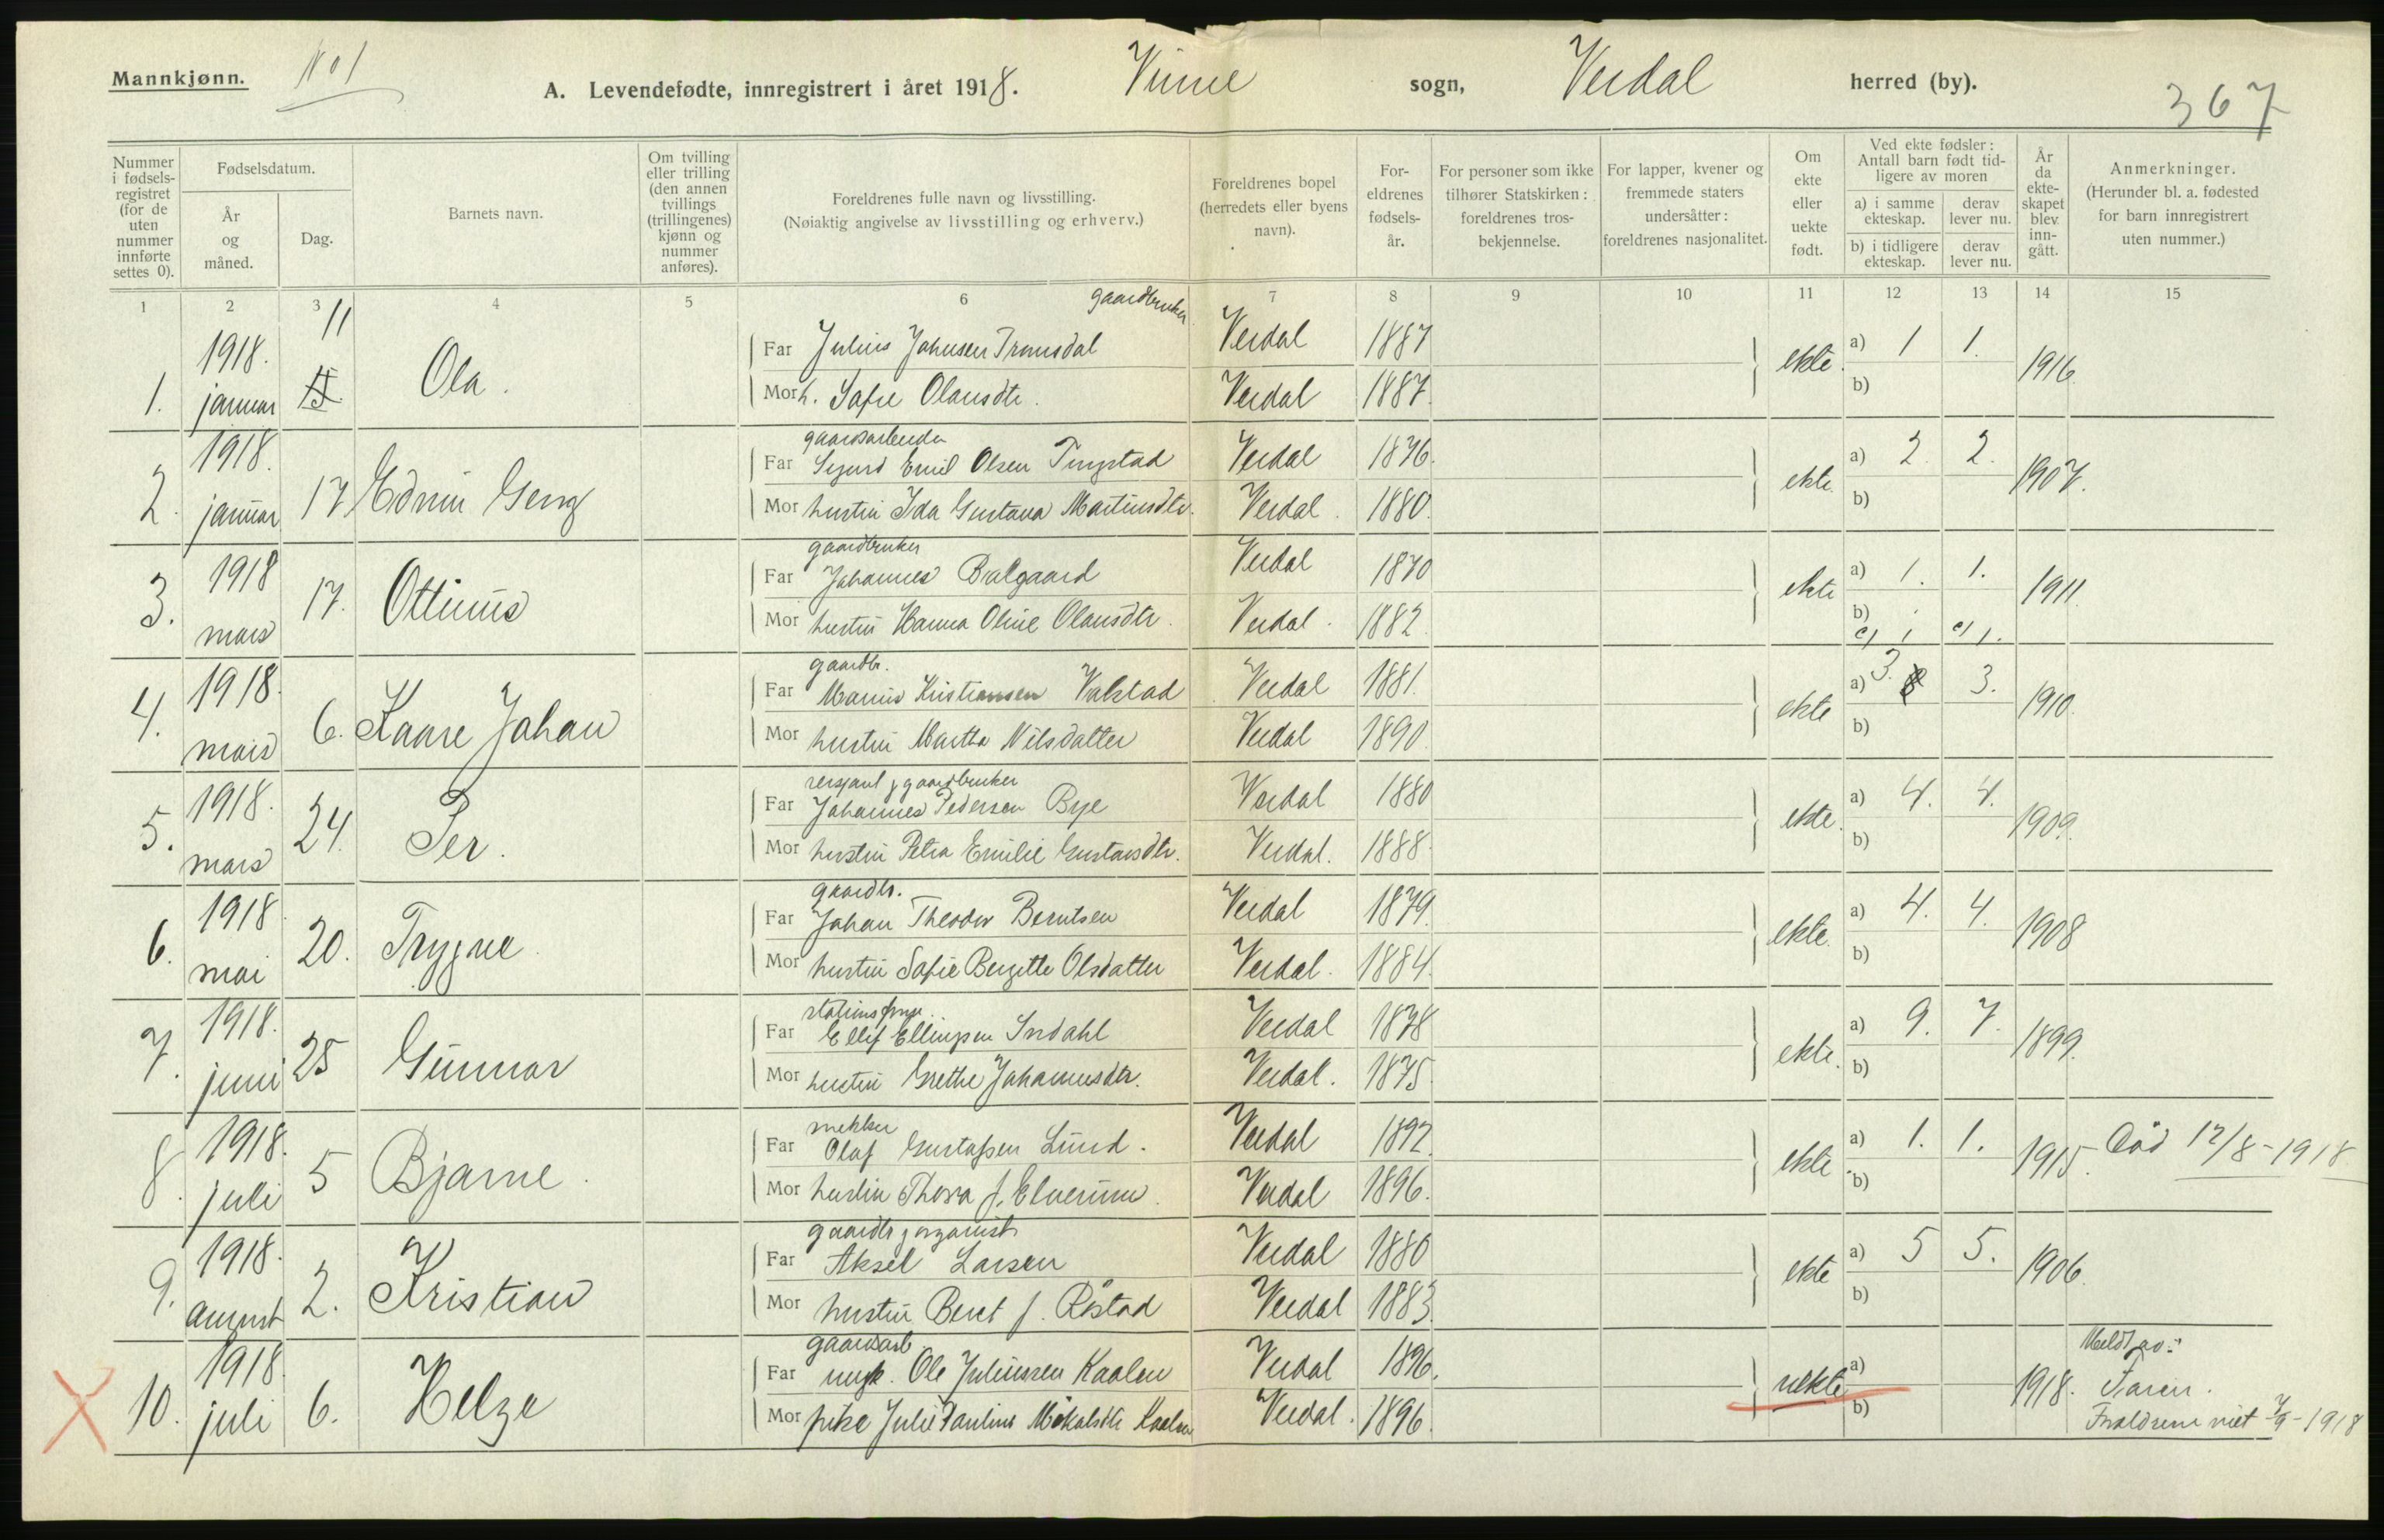 Mannkjønn. No 1
A. Levendefødte, innregistrert i året 1918. Vinne sogn, Verdal herred (by). 367
Nummer i fødsels- registret (for de uten nummer innførte settes 0).
Fødselsdatum.
År og måned.
Dag.
Barnets navn.
Om tvilling eller trilling (den annen tvillings (trillingenes) kjønn og nummer anføres).
Foreldrenes fulle navn og livsstilling.
(Nøiaktig angivelse av livsstilling og erhverv.)
Foreldrenes bopel (herredets eller byens navn).
For- eldrenes fødsels- år.
For personer som ikke tilhører Statskirken: foreldrenes tros- bekjennelse.
For lapper, kvener og fremmede staters undersåtter: foreldrenes nasjonalitet.
Om ekte eller uekte født.
Ved ekte fødsler: Antall barn født tid- ligere av moren
a) i samme ekteskap.
derav lever nu.
b) i tidligere ekteskap.
derav lever nu.
År da ekte- skapet blev inn- gått.
Anmerkninger.
(Herunder bl. a. fødested for barn innregistrert uten nummer.)
1 2 3 4 5 6 7 8 9 10 11 12 13 14 15
gaardbruker
1. 1918. januar 11 Ola. Far Julius Johnsen Tromsdal Verdal 1887 ekte. a) 1 1. 1916.
Mor h. Sofie Olausdtr. Verdal 1887. b)
gaardsarbeider
2. 1918. januar 17 Edvin Georg Far Sigurd Emil Olsen Tingstad Verdal 1876. ekte. a) 2. 2. 1907.
Mor hustru Ida Gustava Martinsdtr. Verdal. 1880. b)
gaardbruker
3. 1918 mars 17. Ottinus Far Johannes Balgaard Verdal 1870 ekte a) 1. 1. 1911.
Mor hustru Hanna Oline Olausdtr. Verdal. 1882. b)
c) 1 c) 1.
gaardbr.
4. 1918. mars 6. Kaare Johan Far Marius Kristiansen Valstad Verdal 1881. ekte a) 3. 3. 1910.
Mor hustru Martha Nilsdatter Verdal 1890. b)
sersjant & gaardbruker
5. 1918. mars 24. Per. Far Johannes Pedersen Bye Verdal 1880 ekte. a) 4. 4. 1909.
Mor hustru Petra Emilie Gustavsdtr. Verdal. 1888. b)
gaardbr.
6. 1918 mai 20. Trygve. Far Johan Theodor Berntsen Verdal 1879. ekte. a) 4. 4. 1908
Mor hustru Sofie Bergitte Olsdatter Verdal. 1884. b)
7. 1918. juni 25 Gunnar Far Ellif Ellingsen Indahl Verdal 1878 ekte. a) 9. 7. 1899.
Mor hustru Grethe Johannesdtr. Verdal. 1875. b)
snekker
8. 1918. juli 5 Bjarne. Far Olaf Gustafsen Lund. Verdal 1892. ekte. a) 1. 1. 1915. Død 12/8-1918
Mor hustru Thora f. Elverum. Verdal 1896. b)
gaardbr & organist
9. 1918. august 2. Kristian Far Aksel Larsen Verdal 1880 ekte a) 5 5. 1906.
Mor hustru Beret f. Røstad Verdal 1883. b)
gaardsarb
10. 1918. juli 6. Helge Far ungk. Ole Juliussen Kaalen Verdal 1896. uekte a) 1918. Meldt av: Faren.
Mor pike Julie Pauline Mikalsdtr Kaalen Verdal. 1896. b) Foreldrene viet 7/9-1918